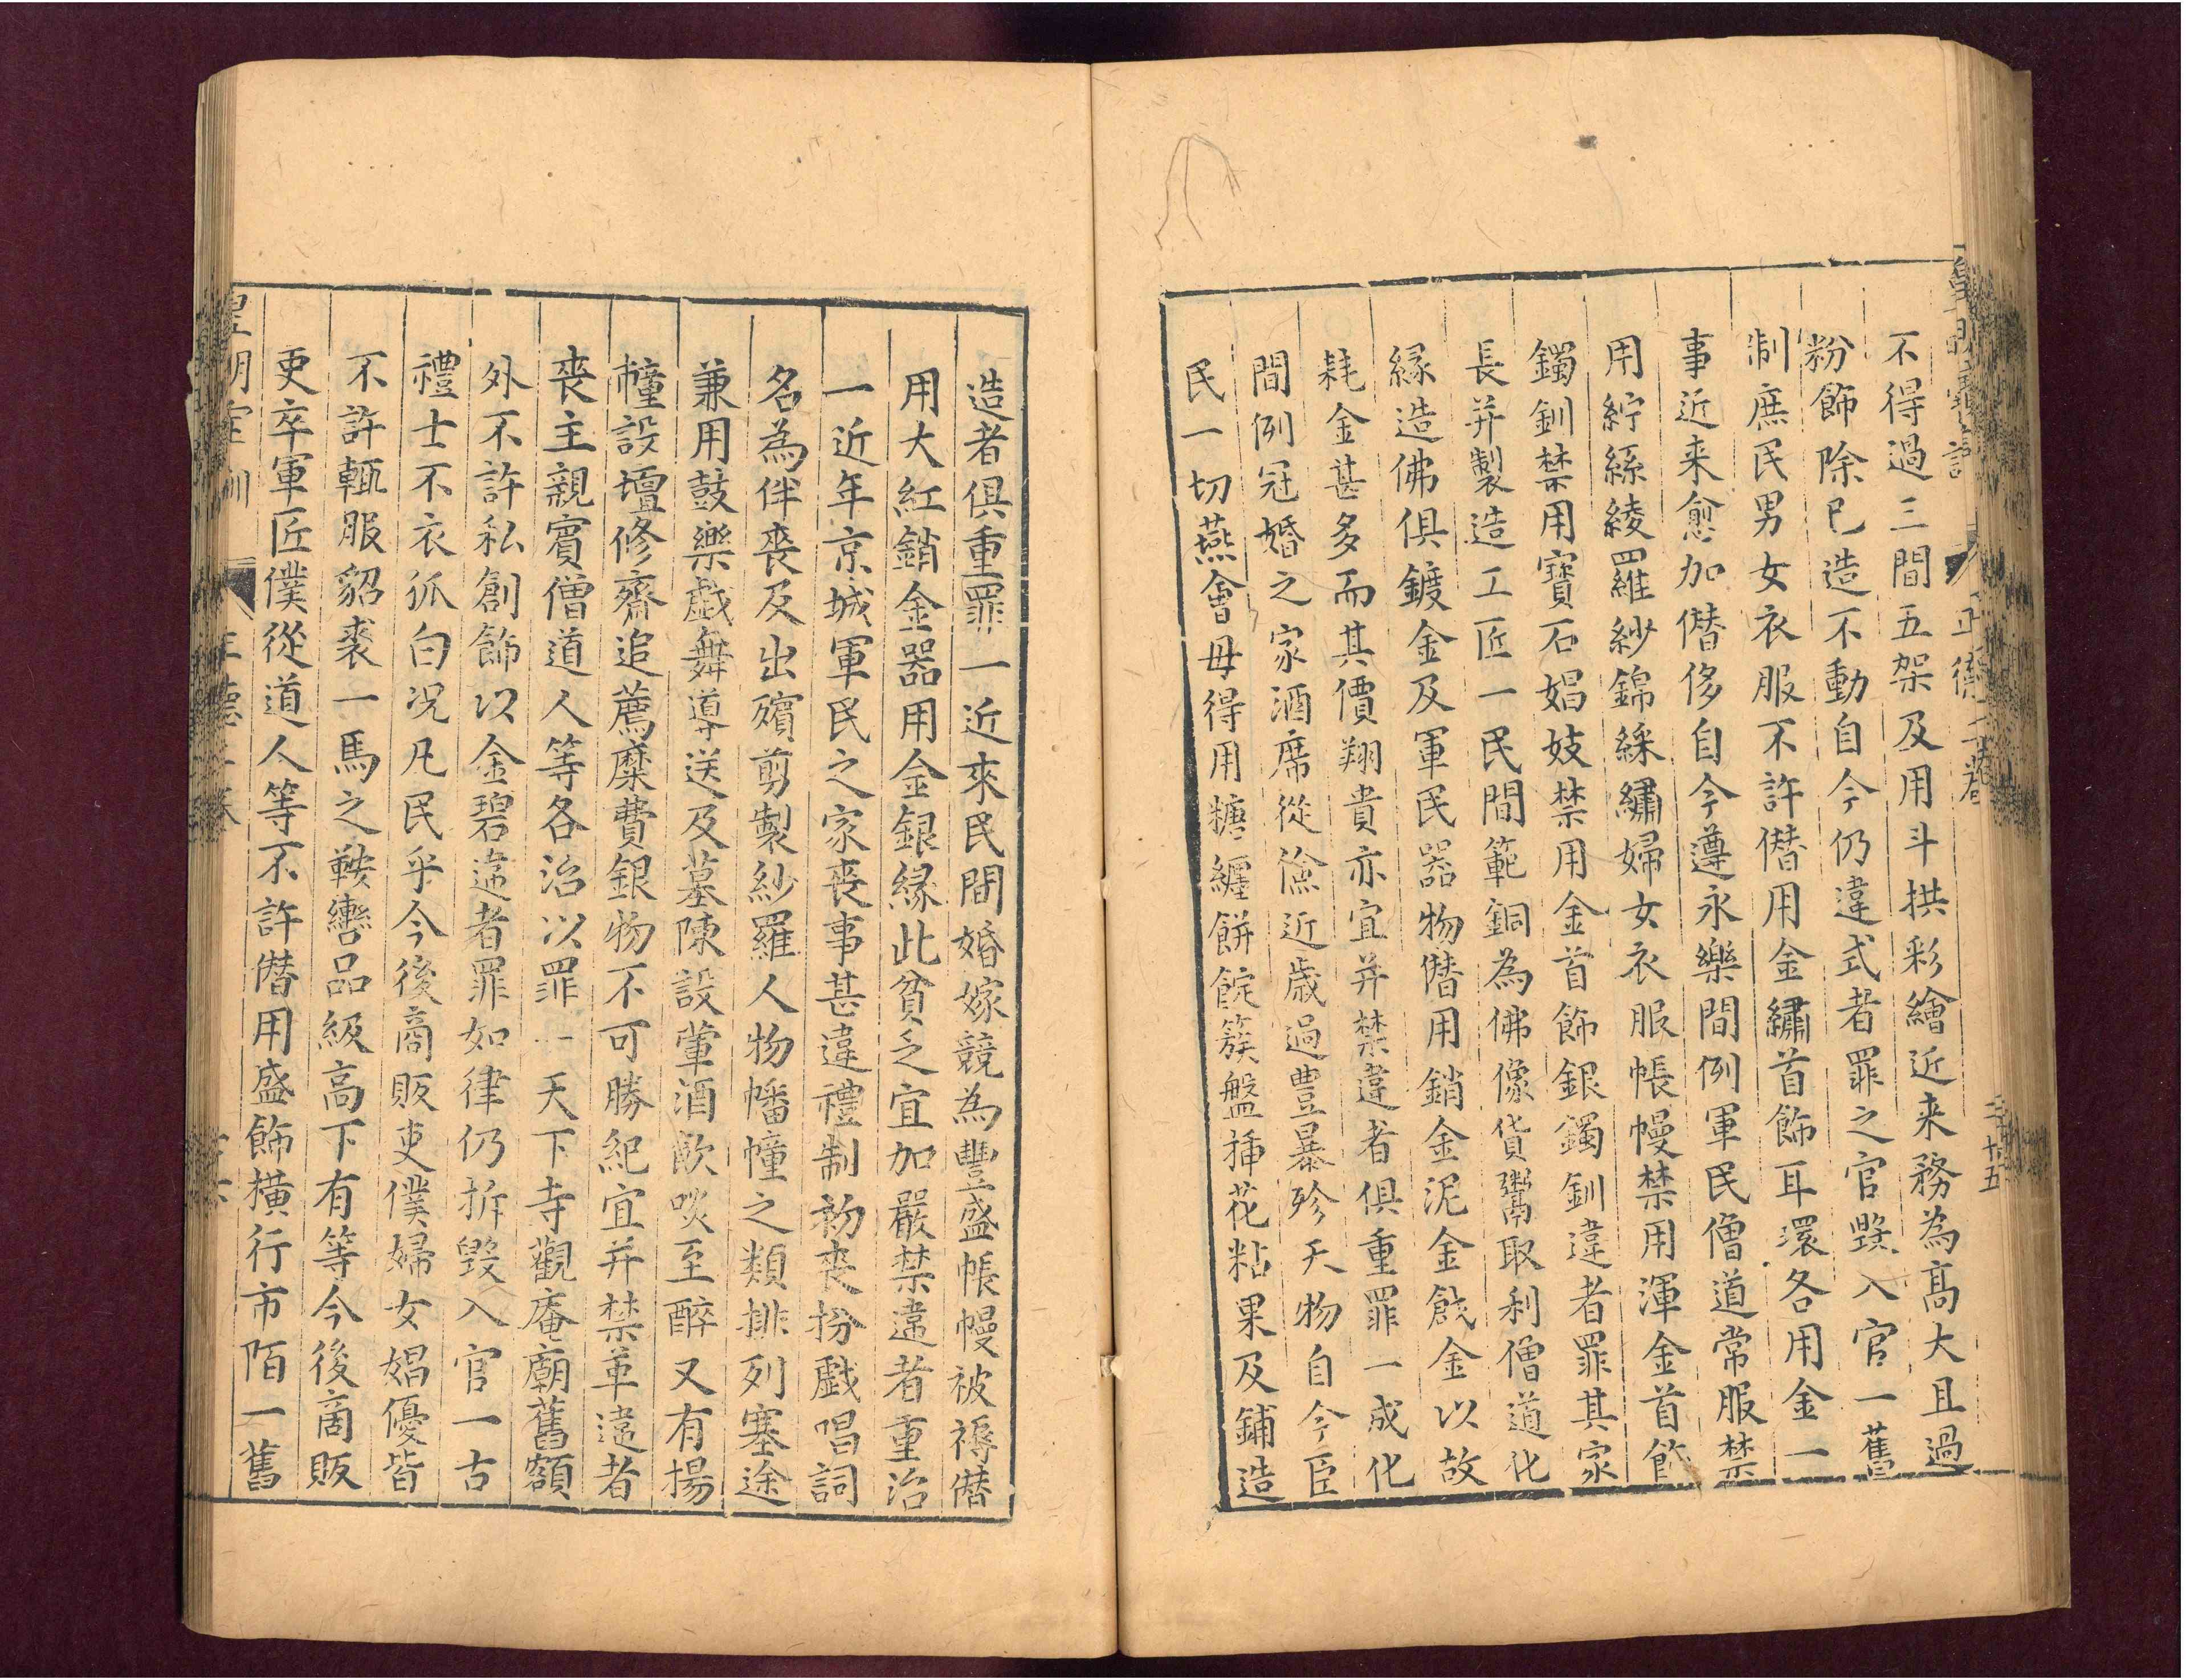 不得過三間五架及用斗拱彩繪近来務為高大且過
粉飾除已造不動自今仍違式者罪之官毀入官一舊
制庶民男女衣服不許僭用金繡首飾耳環各用金一
事近来愈加僭侈自今遵永樂間例軍民僧道常服禁
用紵絲綾羅紗錦綵繡婦女衣服帳幔禁用渾金首飾
鐲釧禁用寶石娼妓禁用金首飾銀鐲釧違者罪其家
長并製造工匠一民間範銅為佛像貨鬻取利僧道化
縁造佛俱鍍金及軍民器物僭用銷金泥金戗金以故
耗金甚多而其價翔貴亦宜并禁違者俱重罪一成化
間例冠婚之家酒席從儉近歲過豊暴殄天物自今臣
民一切燕會毋得用糖纏餅餖簇盤揷花粘果及鋪造
造者俱重罪一近來民間婚嫁競為豐盛帳幔被褥僭
用大紅銷金器用金銀縁此貧乏宜加嚴禁違者重治
一近年京城軍民之家喪事甚違禮制初丧扮戲唱詞
名為伴喪及出殯剪製紗羅人物幡幢之類排列塞途
兼用鼓樂戲舞導送及墓陳設葷酒歃啖至醉又有揚
幢設壇修齋追薦糜費銀物不可勝紀宜并禁革違者
喪主親賓僧道人等各治以罪一天下寺觀庵廟舊額
外不許私創飾以金碧違者罪如律仍拆毀入官一古
禮士不衣狐白况凡民乎今後商販吏僕婦女娼優皆
不許輒服貂裘一馬之鞍轡品級高下有等今後商販
吏卒軍匠僕從道人等不許僭用盛飾横行市陌一舊